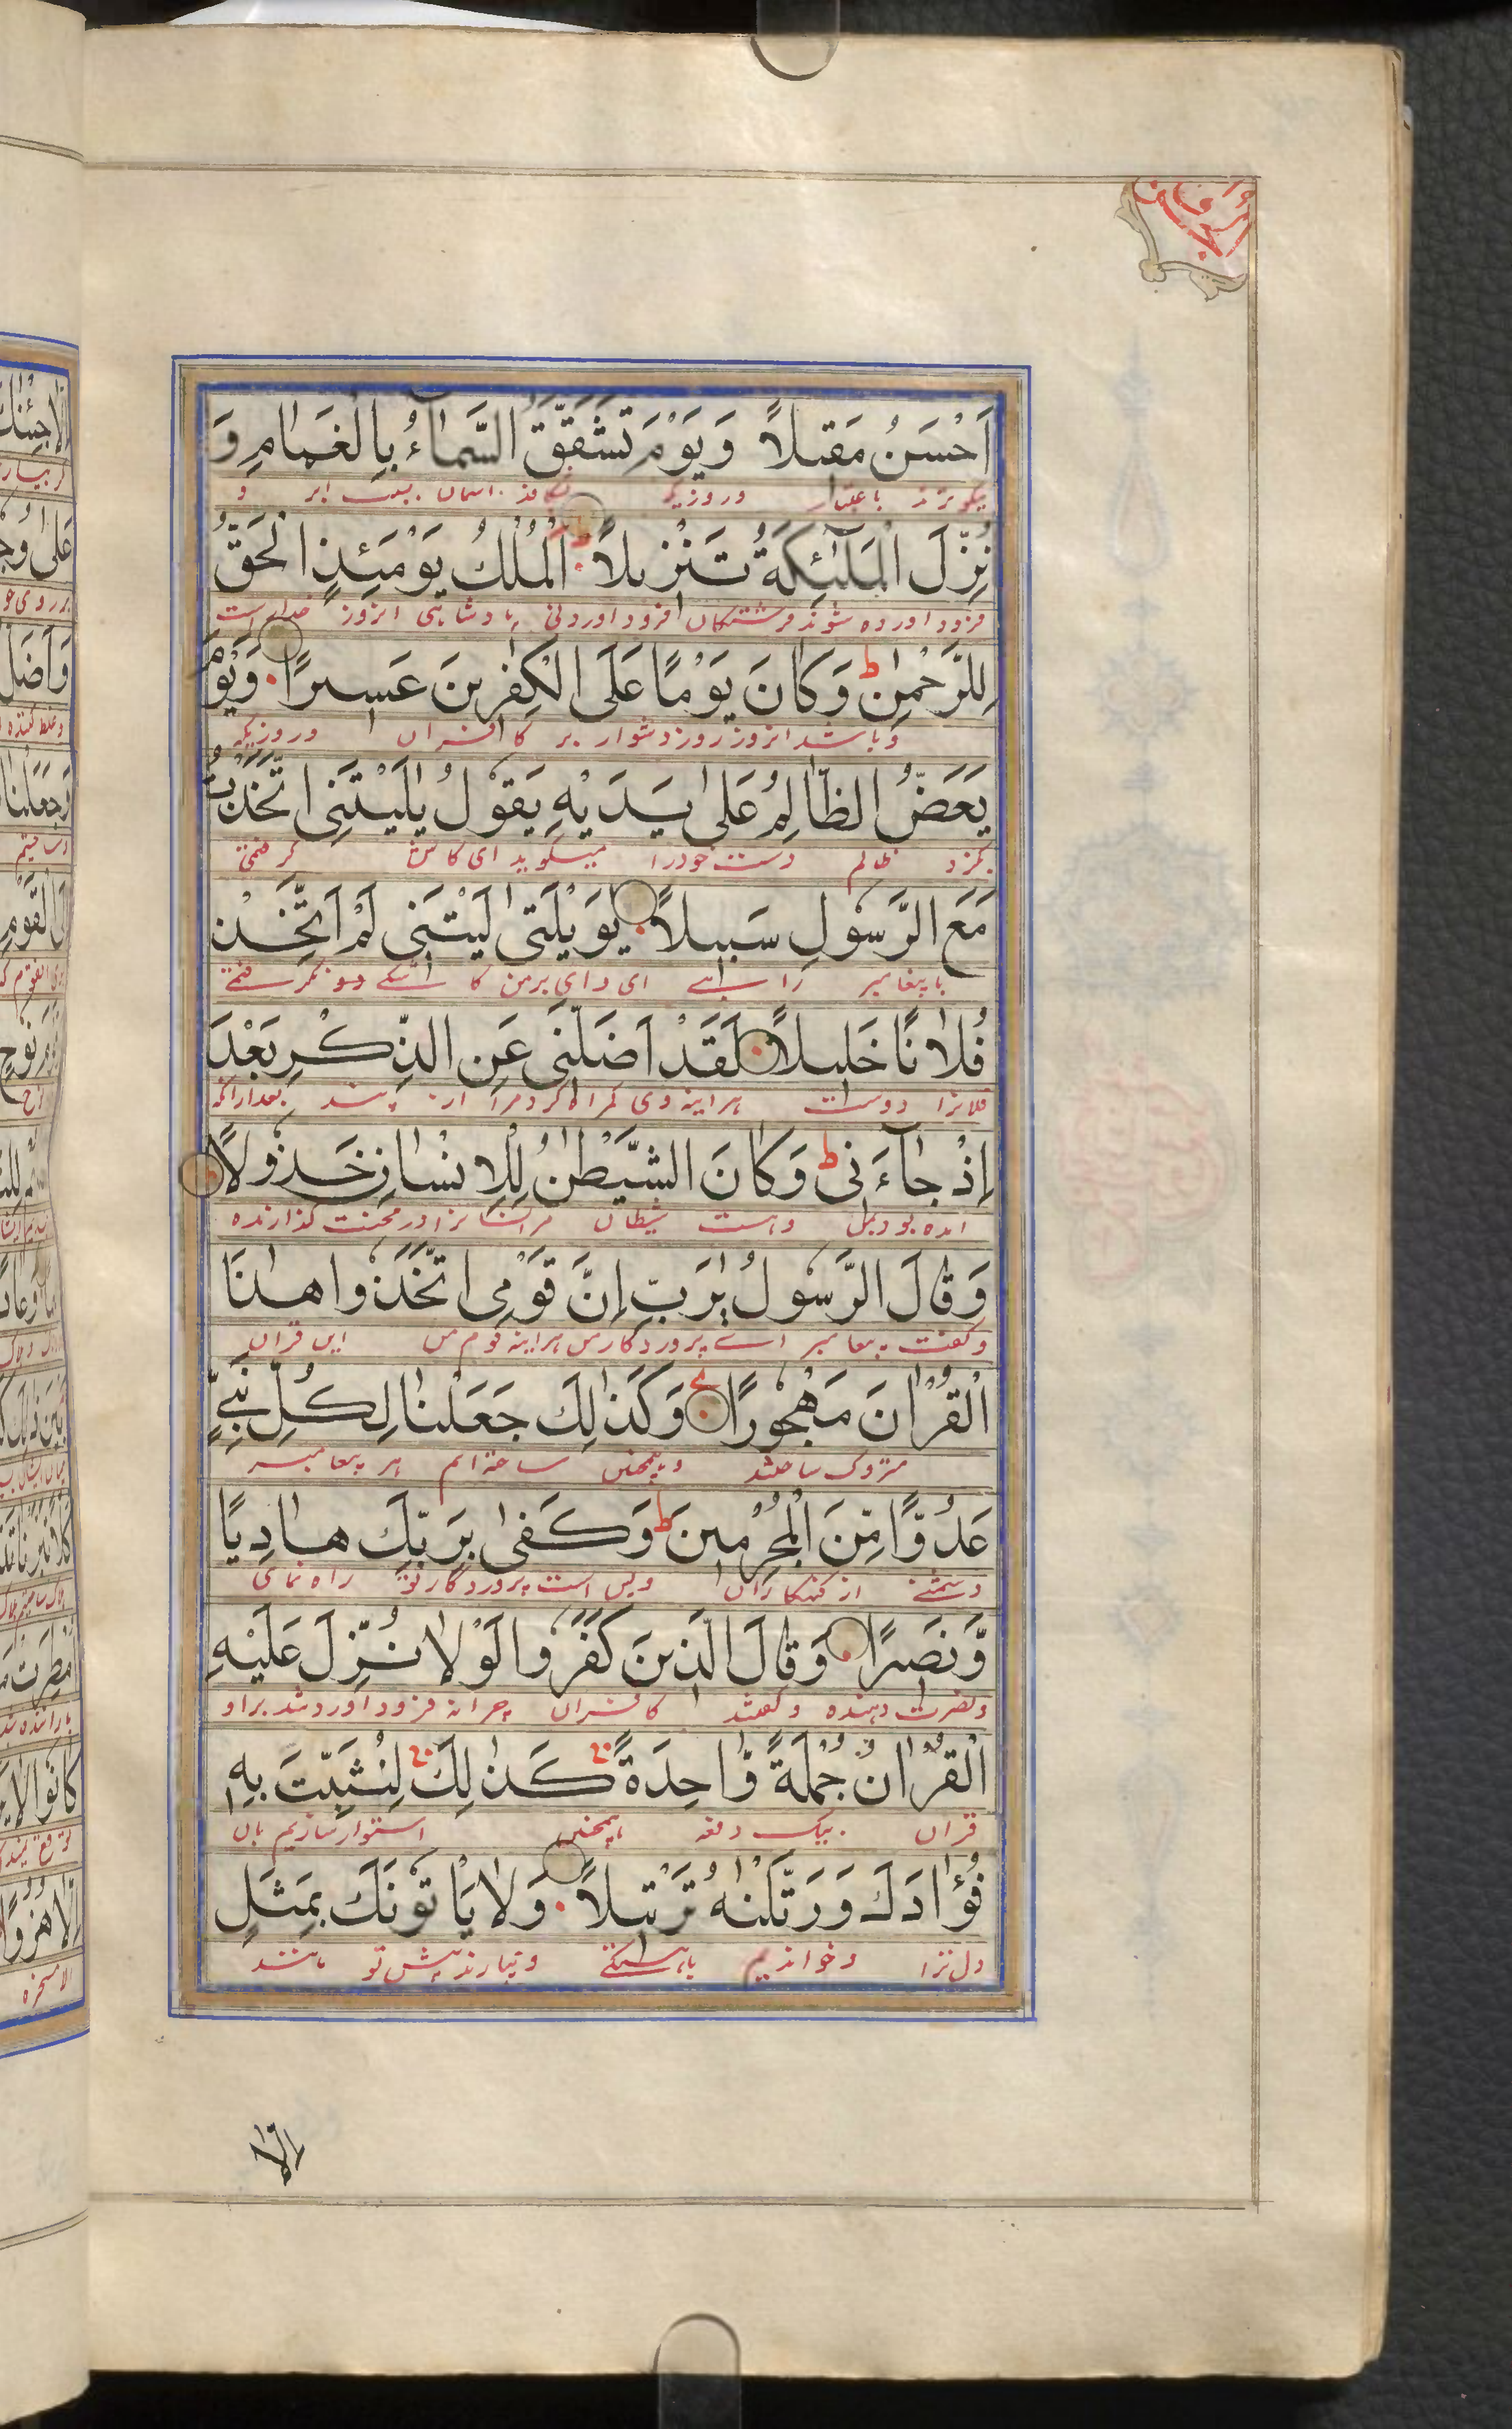 اَحْسَنُ مَقيلاً وَيَوْمَ تَشَقَّقُ السَّمَآءُ بِالْغَمَامِ وَ
وروزیکه آسمان بسبب ابر و
نُزِّلَ الْمَلٰٓئِكَةُ تَنْزيلاً اَلْمُلْكُ يَوْمَئِذٍ الْحَقُّ
فرود اورده شوند فرشتکان فرود اوردنی پادشاهی انروز خدایراست
لِلرَّحْمٰنِ ط وَكَانَ يَوْمًا عَلَى الْكٰفِرينَ عَسيرًا وَيَوْمَ
وباشد انروز روز دشوار بر کافران وروزیکه
يَعَضُّ الظَّالِمُ عَلٰى يَدَيْهِ يَقُولُ يٰلَيْتَنِى اتَّخَذْتُ
بکزد ظالم دست خودرا میکوید ای کاش کرفتمی
مَعَ الرَّسُولِ سَبيلاً يٰوَيْلَتٰى لَيْتَنى لَمْ اَتَّخِذْ
با پیغامبر راهی ای وای برمن کاشکی دوست نکرفتمی
فُلَانًا خَليلاً لَقَدْ اَضَلَّنى عَنِ الذِّكْرِ بَعْدَ
فلانرا دوست هراینه وی کمراه کرد مرا از پند بعد ازانکه
اِذْ جَآءَنى ط وَكَانَ الشَّيْطٰنُ لِلْاِنْسَانِ خَذُولاً
امده بود بمن وهست شیطان مر انسانرا در محنت کذارنده
وَقَالَ الرَّسُولُ يٰرَبِّ اِنَّ قَوْمِى اتَّخَذُوا هٰذَا
وکفت پیغامبر ای پروردکار من هراینه قوم من این قران
الْقُرْاٰنَ مَهْجُورًا وَكَذٰلِكَ جَعَلْنَا لِكُلِّ نَبِىٍّ
متروک ساختند وهمچنین ساخته ایم هر پیغامبر
عَدُوًّا مِّنَ الْمُجْرِمينَ ط وَكَفٰى بِرَبِّكَ هَادِيًا
دشمنی از کنهکاران وبس است پروردکار تو راه نمای
وَّنَصيرًا وَقَالَ الَّذينَ كَفَرُوا لَوْلَا نُزِّلَ عَلَيْهِ
ونصرت دهنده وکفتند کافران چرا نه فرود آورد شد بر او
الْقُرْاٰنُ جُمْلَةً وَّاحِدَةً كَذٰلِكَ لِنُثَبِّتَ بِهِ
قران بیک دفعه همچنین استوار سازیم بان
فُؤَادَكَ وَرَتَّلْنٰهُ تَرْتيلاً وَلَا يَاْتُونَكَ بِمَثَلٍ
دل ترا وخواندیم باهستکی ونیارند پیش تو مانند
اِلَّا